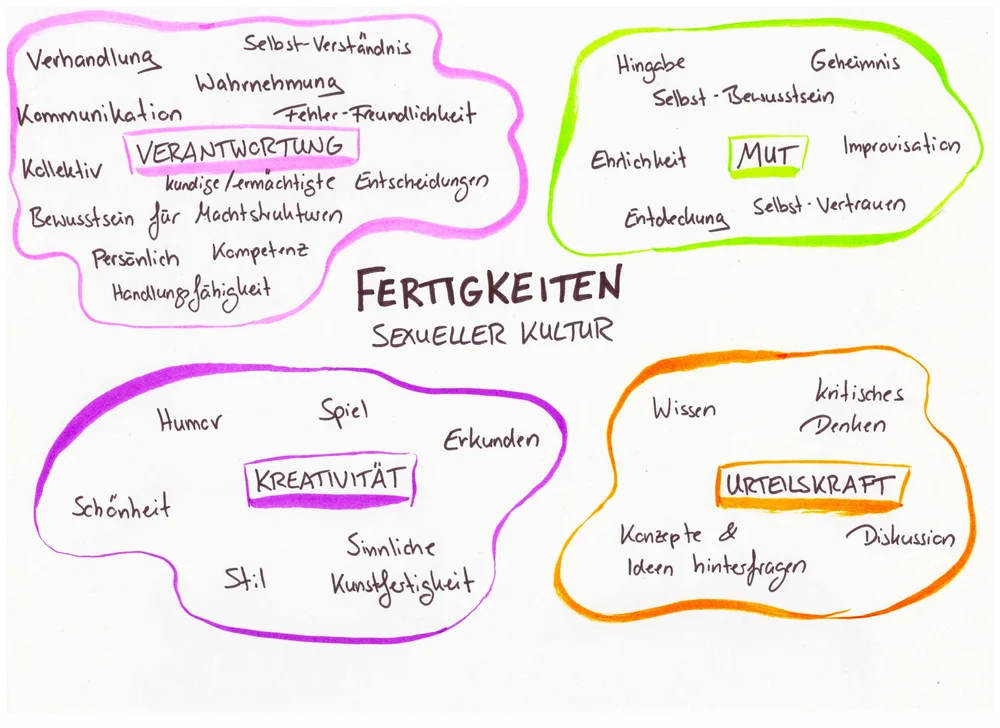 Verhandlung
Selbst-Verständnis
Wahrnehmung
Kommunikation
Fehler-Freundlichkeit
VERANTWORTUNG
Kollektiv
kundige/ermächtigte Entscheidungen
Bewusstsein für Machtstrukturen
Persönlich
Kompetenz
Handlungsfähigkeit
Hingabe
Geheimnis
Selbst-Bewusstsein
Ehrlichkeit
MUT
Improvisation
Entdeckung
Selbst-Vertrauen
FERTIGKEITEN
SEXUELLER KULTUR
Humor
Spiel
Erkunden
KREATIVITÄT
Schönheit
Sinnliche
Kunstfertigkeit
Stil
Wissen
kritisches
Denken
URTEILSKRAFT
Konzepte &
Ideen hinterfragen
Diskussion